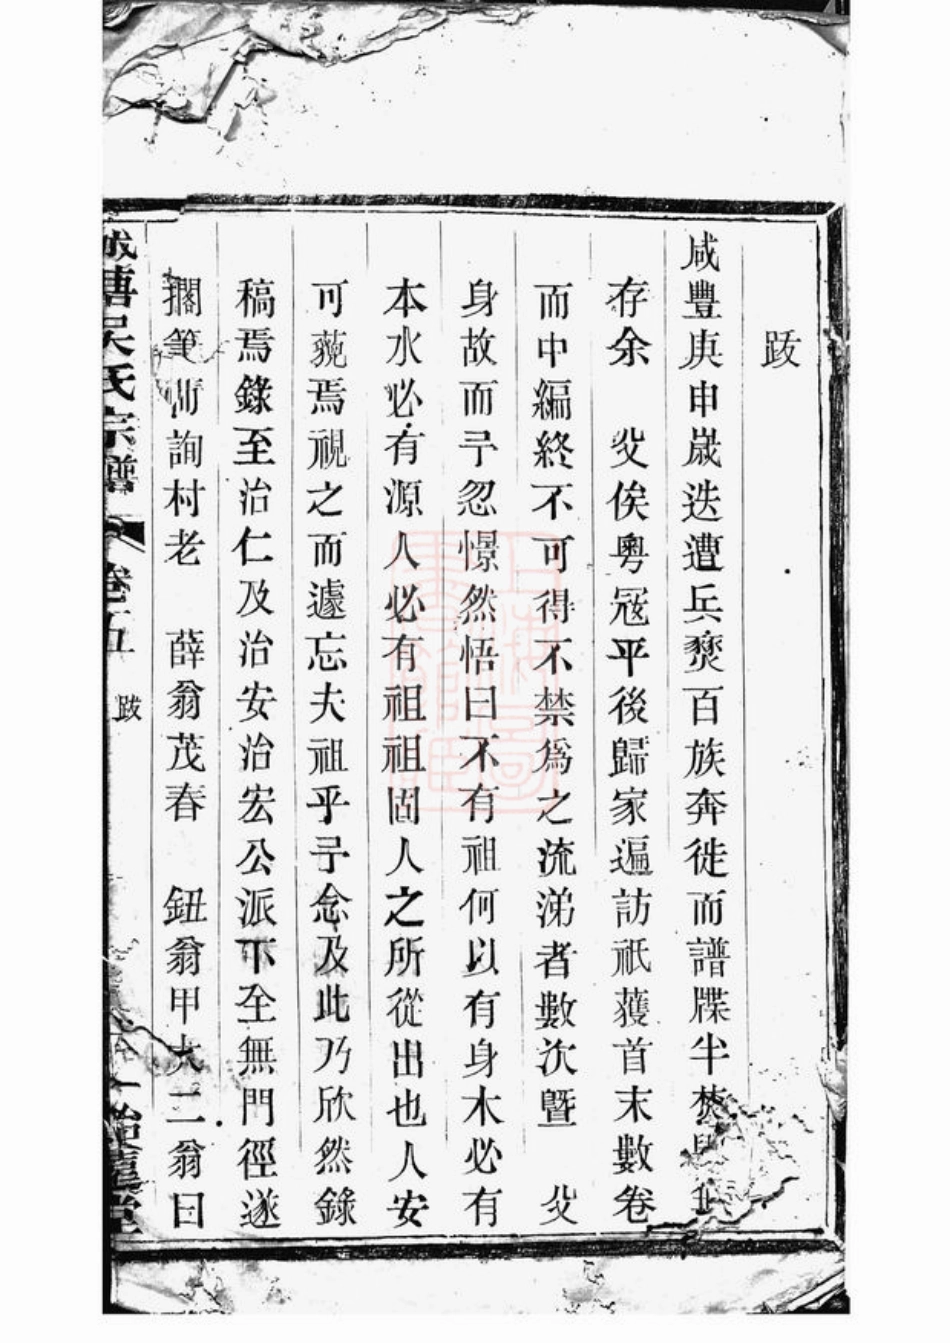 跋
咸豐庚申嵗迭遭兵燹百族奔徙而譜牒半焚
存余 㕛俟粵冦平後歸家遍訪祇蒦首末數卷
而中編終不可得不禁爲之流涕者數次曁 㕛
身故而予忽憬然悟曰不有祖何以有身木必有
本水必有源人必有祖祖固人之所從出也人安
可藐焉視之而遽忘夫祖乎予念及此乃欣然錄
稿焉錄至治仁及治安治宏公派下全無門徑遂
擱筆所詢村老 薛翁茂春 鈕翁甲大二翁曰
吳氏宗譜 卷五 跋